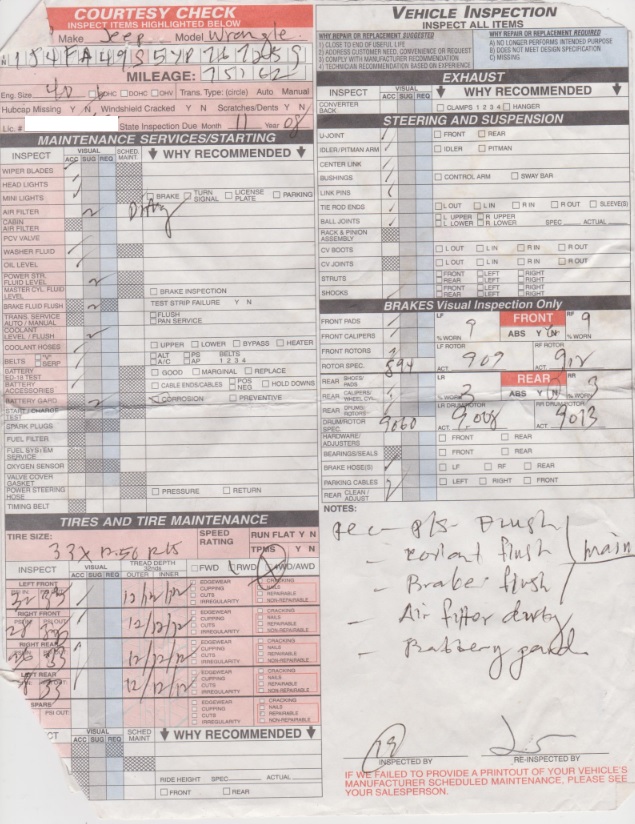 COURTESY CHECK
INSPECT ITEMS HIGHLIGHTED BELOW
Make Jeep Model Wrangle
MILEAGE: 75162
Eng. Size 4.0 OHC DOHC OHV Trans. Type: (circle) Auto Manual
Hubcap Missing Y N Windshield Cracked Y N Scratches/Dents Y N
Lic. # State Inspection Due Month 11 Year 08
MAINTENANCE SERVICES/STARTING
INSPECT VISUAL ACC SUG REQ SCHED. MAINT. WHY RECOMMENDED
WIPER BLADES
HEAD LIGHTS
MINI LIGHTS BRAKE TURN SIGNAL LICENSE PLATE PARKING
AIR FILTER Dirty
CABIN AIR FILTER
PCV VALVE
WASHER FLUID
OIL LEVEL
POWER STR. FLUID LEVEL
MASTER CYL. FLUID LEVEL BRAKE INSPECTION
BRAKE FLUID FLUSH TEST STRIP FAILURE Y N
TRANS. SERVICE AUTO / MANUAL FLUSH PAN SERVICE
COOLANT LEVEL / FLUSH
COOLANT HOSES UPPER LOWER BYPASS HEATER
BELTS "V" SERP ALT A/C PS AP BELTS 1 2 3 4
BATTERY ED-18 TEST GOOD MARGINAL REPLACE
BATTERY ACCESSORIES CABLE ENDS/CABLES POS NEG HOLD DOWNS
BATTERY GARD CORROSION PREVENTIVE
START / CHARGE TEST
SPARK PLUGS
FUEL FILTER
FUEL SYSTEM SERVICE
OXYGEN SENSOR
VALVE COVER GASKET
POWER STEERING HOSE PRESSURE RETURN
TIMING BELT
TIRES AND TIRE MAINTENANCE
TIRE SIZE: SPEED RATING RUN FLAT Y N
33 X 12.50 R15 TPMS Y N
INSPECT VISUAL ACC SUG REQ TREAD DEPTH 32nds OUTER INNER FWD RWD 4WD/AWD
LEFT FRONT 12/12/12 EDGEWEAR CUPPING CUTS IRREGULARITY CRACKING NAILS REPAIRABLE NON-REPAIRABLE
RIGHT FRONT 12/12/12 EDGEWEAR CUPPING CUTS IRREGULARITY CRACKING NAILS REPAIRABLE NON-REPAIRABLE
RIGHT REAR 33 12/12/12 EDGEWEAR CUPPING CUTS IRREGULARITY CRACKING NAILS REPAIRABLE NON-REPAIRABLE
LEFT REAR 33 12/12/12 EDGEWEAR CUPPING CUTS IRREGULARITY CRACKING NAILS REPAIRABLE NON-REPAIRABLE
SPARE PSI OUT EDGEWEAR CUPPING CUTS IRREGULARITY CRACKING NAILS REPAIRABLE NON-REPAIRABLE
VISUAL ACC SUG REQ SCHED MAINT WHY RECOMMENDED
RIDE HEIGHT SPEC ACTUAL
FRONT REAR
VEHICLE INSPECTION
INSPECT ALL ITEMS
WHY REPAIR OR REPLACEMENT SUGGESTED
1) CLOSE TO END OF USEFUL LIFE
2) ADDRESS CUSTOMER NEED, CONVENIENCE OR REQUEST
3) COMPLY WITH MANUFACTURER RECOMMENDATION
4) TECHNICIAN RECOMMENDATION BASED ON EXPERIENCE
WHY REPAIR OR REPLACEMENT REQUIRED
A) NO LONGER PERFORMS INTENDED PURPOSE
B) DOES NOT MEET DESIGN SPECIFICATION
C) MISSING
EXHAUST
INSPECT VISUAL ACC SUG REQ WHY RECOMMENDED
CONVERTER BACK CLAMPS 1 2 3 4 HANGER
STEERING AND SUSPENSION
U-JOINT FRONT REAR
IDLER/PITMAN ARM IDLER PITMAN
CENTER LINK
BUSHINGS CONTROL ARM SWAY BAR
LINK PINS
TIE ROD ENDS L OUT L IN R IN R OUT SLEEVE(S)
BALL JOINTS L UPPER R UPPER L LOWER R LOWER SPEC ACTUAL
RACK & PINION ASSEMBLY
CV BOOTS L OUT L IN R IN R OUT
CV JOINTS L OUT L IN R IN R OUT
STRUTS FRONT REAR LEFT LEFT RIGHT RIGHT
SHOCKS FRONT REAR LEFT LEFT RIGHT RIGHT
BRAKES Visual Inspection Only
FRONT PADS LF 9 FRONT RF 9
FRONT CALIPERS % WORN ABS Y N % WORN
FRONT ROTORS LF ROTOR RF ROTOR
ROTOR SPEC. 894 ACT. 907 ACT. 912
REAR SHOES/PADS LR 3 REAR RR 3
REAR CALIPERS/WHEEL CYL. % WORN ABS Y N % WORN
REAR DRUMS/ROTORS LR DRUM/ROTOR RR DRUM/ROTOR
DRUM/ROTOR SPEC 9060 ACT. 9.008 ACT. 9013
HARDWARE/ADJUSTERS FRONT REAR
BEARINGS/SEALS FRONT REAR
BRAKE HOSE(S) LF RF REAR
PARKING CABLES LEFT RIGHT FRONT
REAR CLEAN / ADJUST
NOTES:
Rec - P/S Flush
- coolant flush main
- Brake flush
- Air filter dirty
- Battery gard
INSPECTED BY RE-INSPECTED BY
IF WE FAILED TO PROVIDE A PRINTOUT OF YOUR VEHICLE'S
MANUFACTURER SCHEDULED MAINTENANCE, PLEASE SEE
YOUR SALESPERSON.